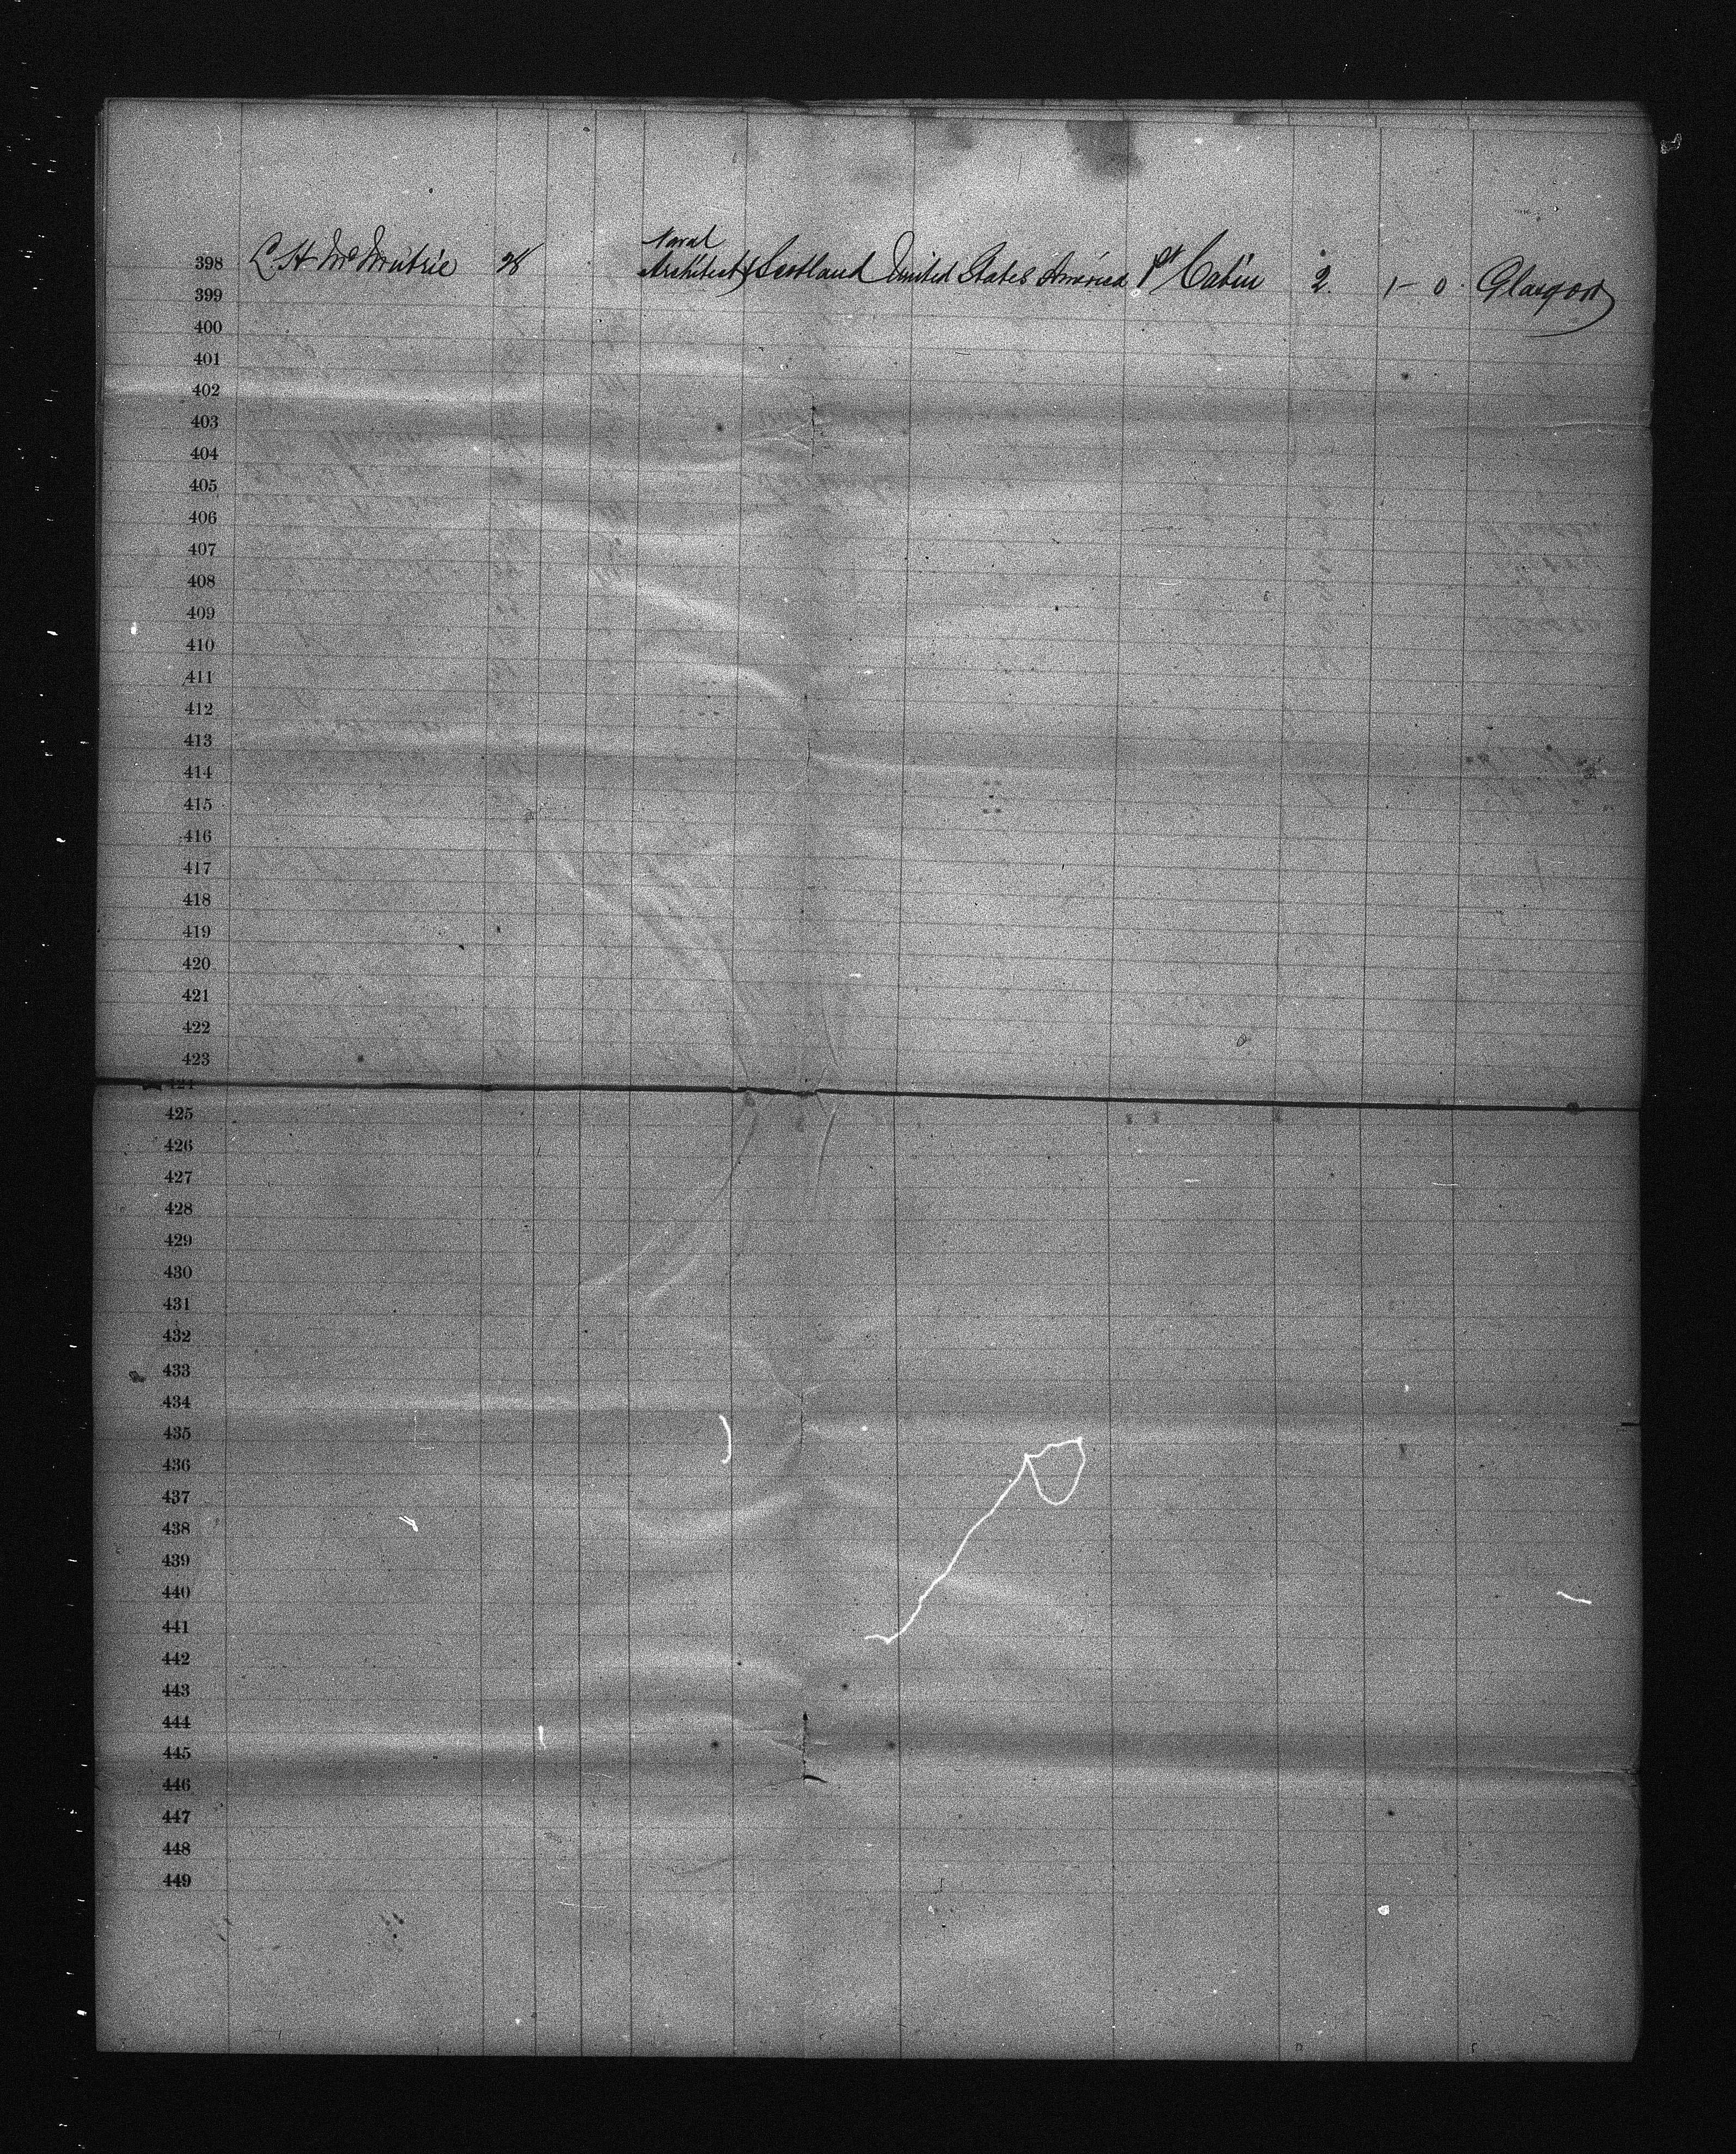 Naval
398 L. H. McMutrie 28 Architect } Scotland United States America 1st Cabin 2. 1 - 0. Glasgow
399
400
401
402
403
404
405
406
407
408
409
410
411
412
413
414
415
416
417
418
419
420
421
422
423
424
425
426
427
428
429
430
431
432
433
434
435
436
437
438
439
440
441
442
443
444
445
446
447
448
449